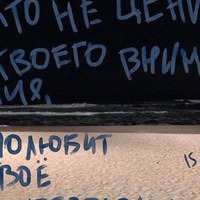 КТО НЕ ЦЕНИ
ТВОЕГО ВНИМ
ИЯ,
ПОЛЮБИТ
ВОЁ
IS